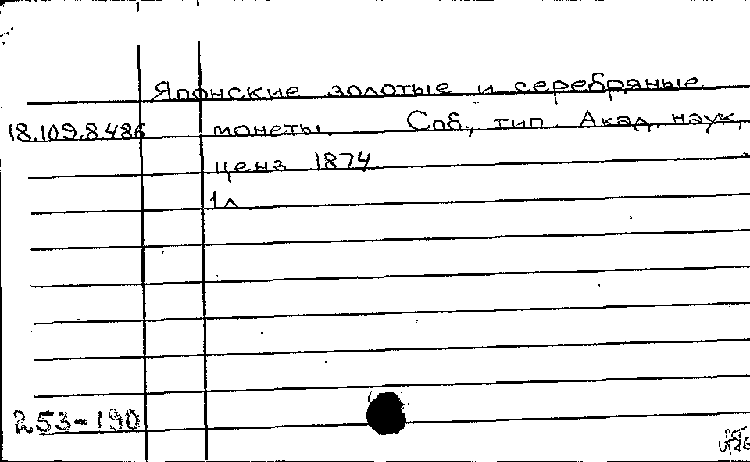 Японские золотые и серебряные
18.109.8.486 монеты. Спб., тип. Акад. наук,
ценз 1874.
1 л
253-190